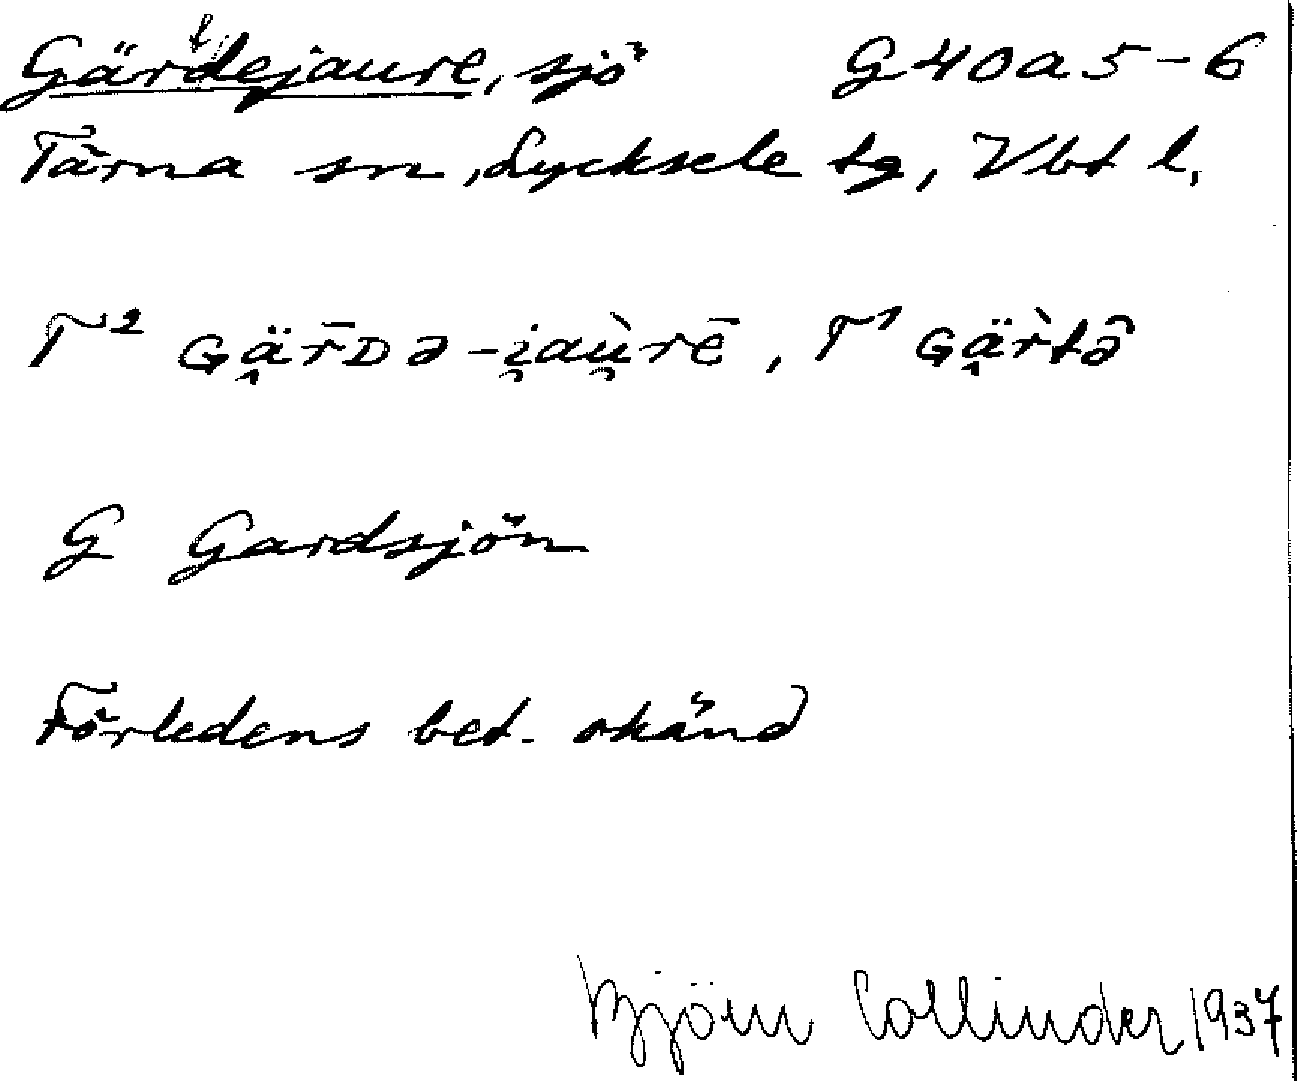 Gärdejaure, sjö G40a5-6
t
Tärna sn, Lycksele tg, Vbt l.
T² Gä̭r̄Də-i̯aù̯rē, T¹ Gä̭r̀tə̂
G Gardsjön
Förledens bet. okänd
Björn Collinder 1937